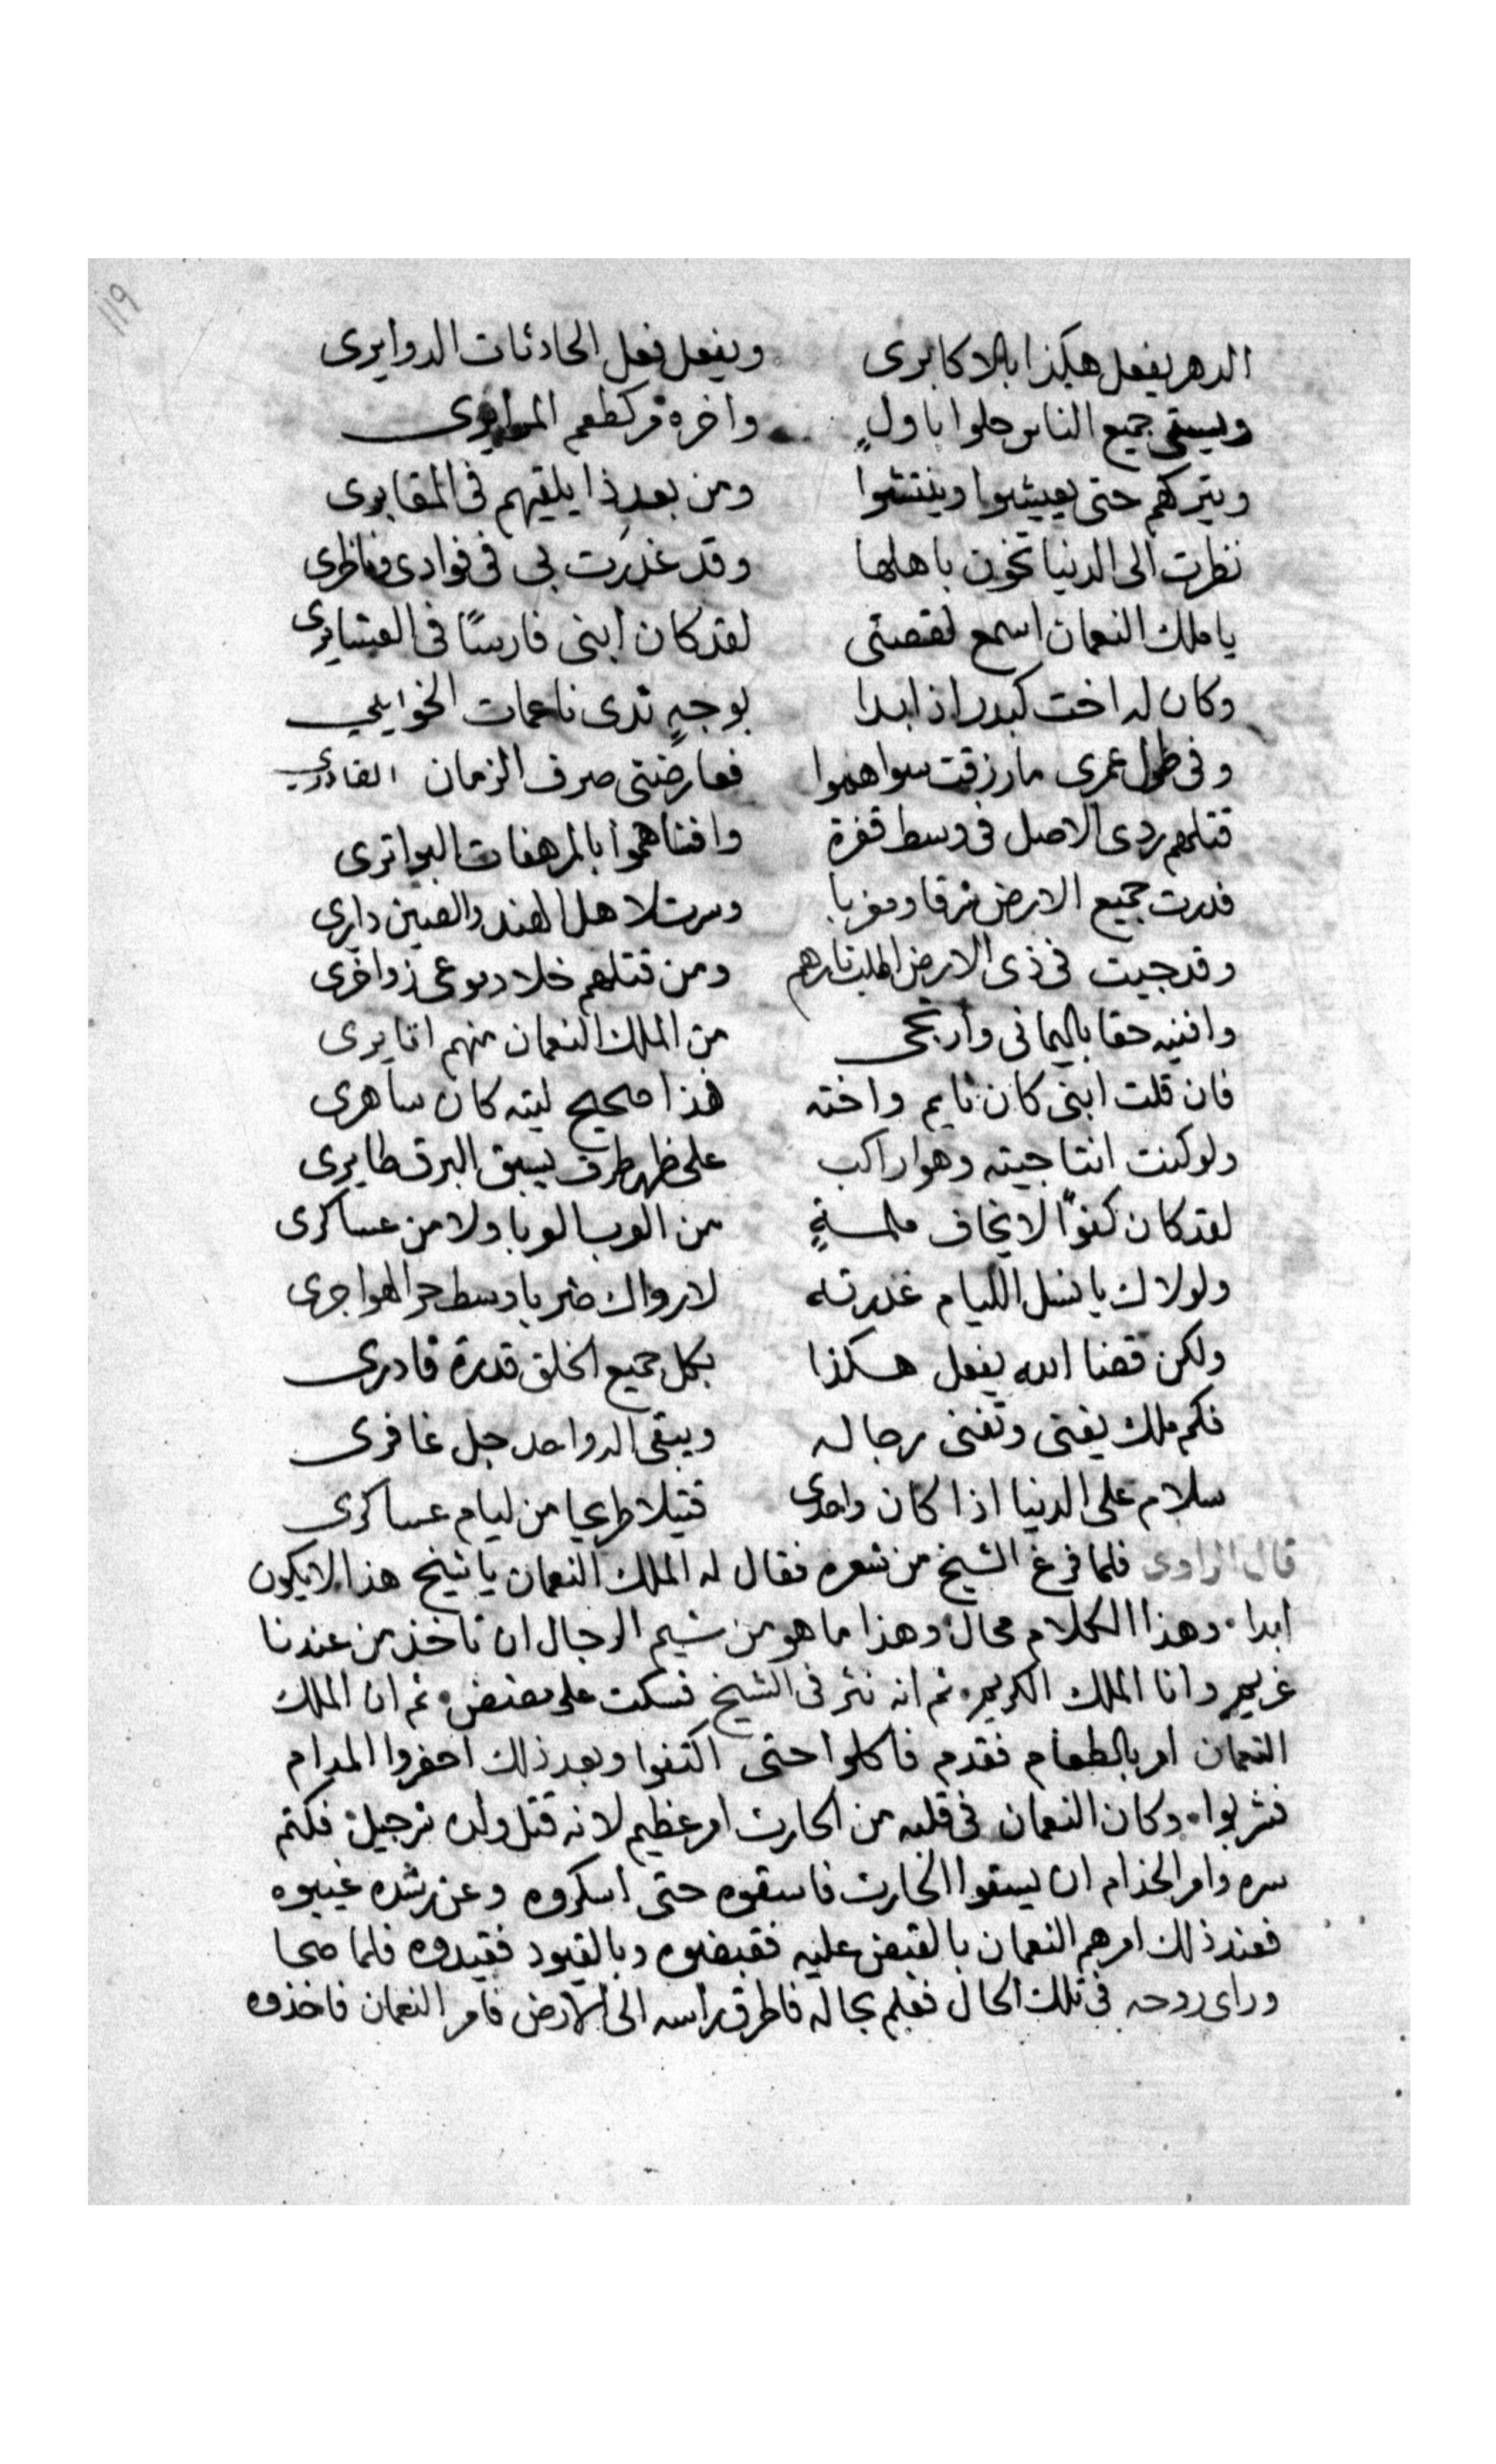 ١١٩
الدهر يفعل هكذا بالاكابرى ويفعل فعل الحادثات الدوايرى
ويسقى جميع الناس حلوا باول واخره مر كطعم المرايرى
ويتركهم حتى يعيشوا وينتشوا ومن بعد ذا يلقيهم فى المقابرى
نظرت الى الدنيا تخون باهلها وقد غدرت بى فى فوادى وناظرى
يا ملك النعمان اسمع لقصتى لقد كان ابنى فارسًا فى العشايرى
وكان له اخت كبدر اذا بدا بوجهٍ ندى ناعمات
وفى طول عمرى ما رزقت سواهموا فعارضنى صرف الزمان الغادرى
قتلهم ردى الاصل فى وسط قفرة وافناهموا بالمرهفات البواترى
فدرت جميع الارض شرقا ومغربا وسرت لاهل الهند والصين دايرى
وقد جيت فى ذى الارض اطلب تارهم ومن قتلهم خلا دموعى زواخرى
وافنيه حقا باليمانى وارتجى من الملك النعمان منهم
فان قلت ابنى كان نايم واخته هذا صحيح ليته كان ساهرى
ولو كنت انتا جيته وهوا راكب على ظهر طرف يسبق البرق طايرى
لقد كان كفوًا لا يخاف ملمةٍ من الوب الوبا ولا من عساكرى
ولولاك يا نسل الليام غدرته لارواك ضربا وسط حر الهواجرى
ولكن قضا الله يفعل هكذا بكل جميع الخلق قدرة قادرى
فكم ملك يفنى وتفنى رجاله ويبقى اله واحد جل غافرى
سلام على الدنيا اذا كان واحدى قتيلا طريحا من ليام عساكرى
قال الراوى فلما فرغ الشيخ من شعره فقال له الملك النعمان يا شيخ هذا لا يكون
ابدا وهذا الكلام محال وهذا ما هو من شيم الرجال ان تاخذ من عندنا
غريم وانا الملك الكريم ثم انه نتر فى الشيخ فسكت على مضض ثم ان الملك
النعمان امر بالطعام فقدم فاكلوا حتى اكتفوا وبعد ذلك احضروا المدام
فشربوا وكان النعمان فى قلبه من الحارث امر عظيم لانه قتل ولده شرحبيل فكتم
سره وامر الخدام ان يسقوا الحارث فاسقوه حتى اسكروه وعن رشده غيبوه
فعند ذلك امرهم النعمان بالقبض عليه فقبضوه وبالقيود فقيدوه فلما صحا
وراى روحه فى تلك الحال فعلم بحاله فاطرق راسه الى الارض فامر النعمان فاخذوه